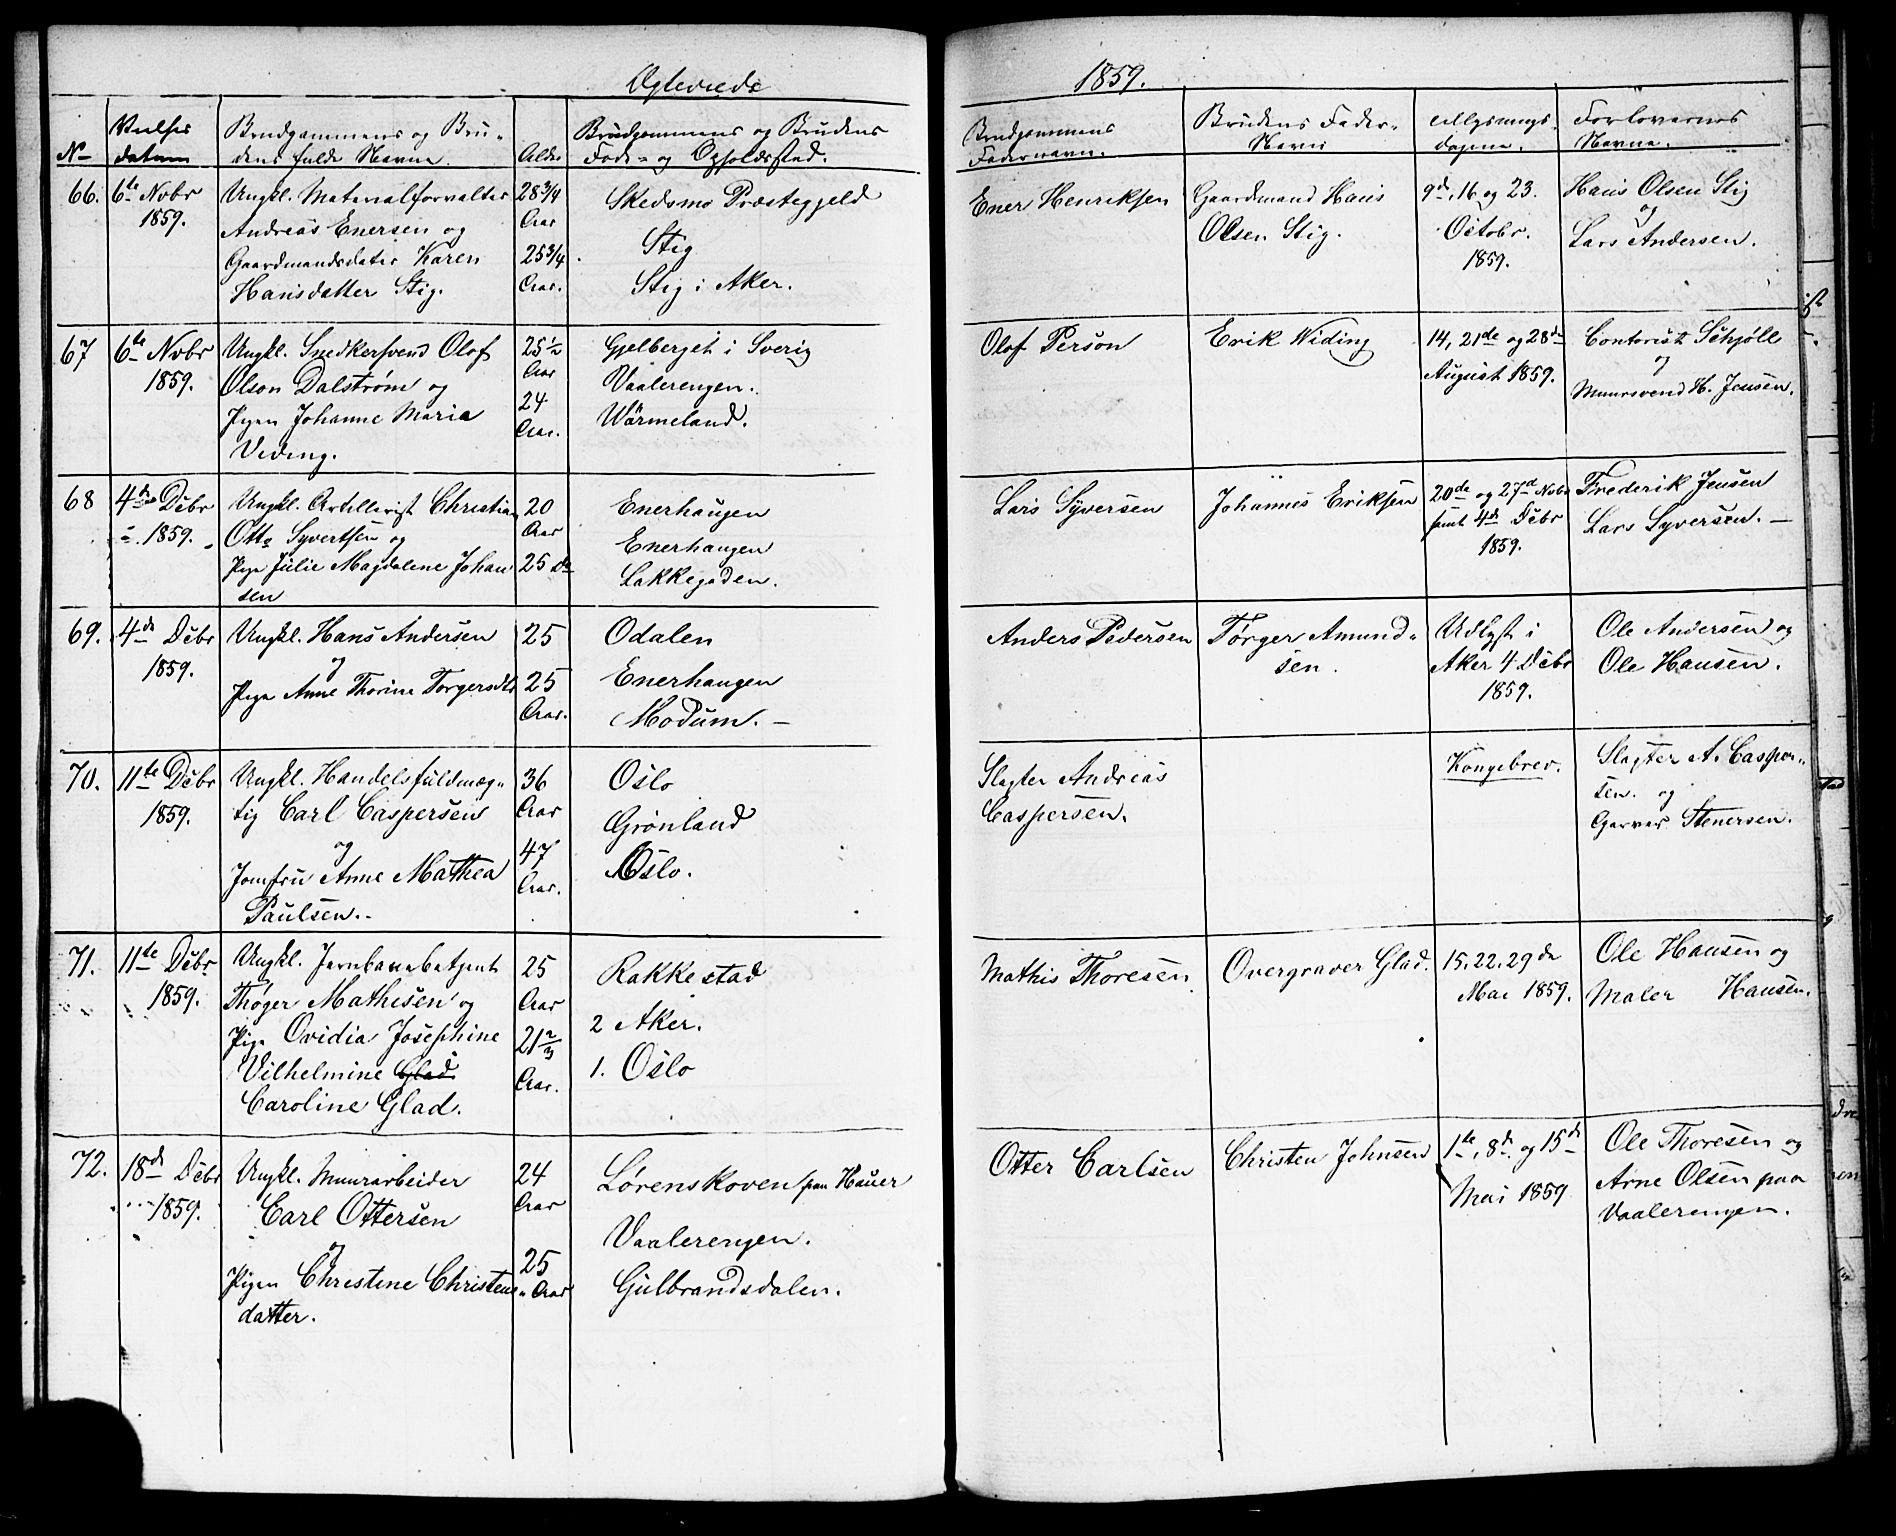 Ægteviede
1859.
No
Vielses
datum
Brudgommens og Bru-
dens fulde Navne.
Alder
Brudgommens og Brudens
Føde- og Opholdssted.
Brudgommens
Fadernavn.
Brudens Fader-
Navn
Lysnings-
dagene.
Forlovernes
Navne.
66.
6te Novbr
1859.
Ungkl. Materialforvalter
Andreas Enersen og
Gaardmandsdatter Karen
Hansdatter Stig.
28 3/4
Aar
25 3/4
Aar.
Skedsmo Præstegjeld
Stig
Stig i Aker.
Ener Henriksen
Gaardmand Hans
Olsen Stig.
9de, 16 og 23.
Octobr.
1859.
Hans Olsen Stig
og
Lars Andersen.
67
6te Novbr
1859.
Ungkl. Snedkersvend Olof
Olson Dalstrøm og
Pigen Johanne Maria
Veding.
25 1/2
Aar
24
Aar.
Gjelberget i Sverig
Vaalerengen.
Wärmeland.
Olof Person
Erik Widing
14, 21de og 28de
August 1859.
Contorist Schjøll
og
Muursvend H. Jensen.
68
4de Debr
1859.
Ungkl. Artillerist Christian
Otto Syvertsen og
Pige Julie Magdalene Johan
sen
20
Aar
25 Do
Enerhaugen
Enerhaugen
Lakkegaden.
Lars Syversen
Johannes Eriksen
20de og 27de Novbr
samt 4de Debr
1859.
Frederik Jensen
Lars Syversen. —
69.
4de Debr
1859.
Ungkl. Hans Andersen
og
Pige Anne Thorine Torgersdtr
25
25
Aar.
Odalen
Enerhaugen
Modum. —
Anders Pedersen
Torger Amund-
sen.
Udlyst i
Aker 4 Debr
1859.
Ole Andersen og
Ole Hansen.
70.
11te Debr
1859.
Ungkl. Handelsfuldmæg-
tig Carl Caspersen
og
Jomfru Anne Mathea
Paulsen.
36
Aar
47
Aar.
Oslo
Grønland
Oslo.
Slagter Andreas
Caspersen.
Kongebrev.
Slagter A. Casper-
sen. og
Garver Stenersen.
71.
11te Debr
1859.
Ungkl. Jernbanebetjent
Thøger Mathisen og
Pige Ovidia Josephine
Vilhelmine Glad
Caroline Glad.
25
Aar
21 2/3
Aar.
Rakkestad
2 Aker.
1. Oslo
Mathis Thoresen
Overgraver Glad.
15. 22. 29de
Mai 1859.
Ole Hansen og
Maler Hansen.
72.
18de Debr
1859.
Ungkl. Muurarbeider
Carl Ottersen
og
Pigen Christine Christens-
datter.
24
Aar
25
Aar
Lørenskoven paa Hauer
Vaalerengen.
Gulbrandsdalen.
Otter Carlsen
Christen Johnsen
1te, 8de og 15de
Mai 1859
Ole Thoresen og
Arne Olsen paa
Vaalerengen.